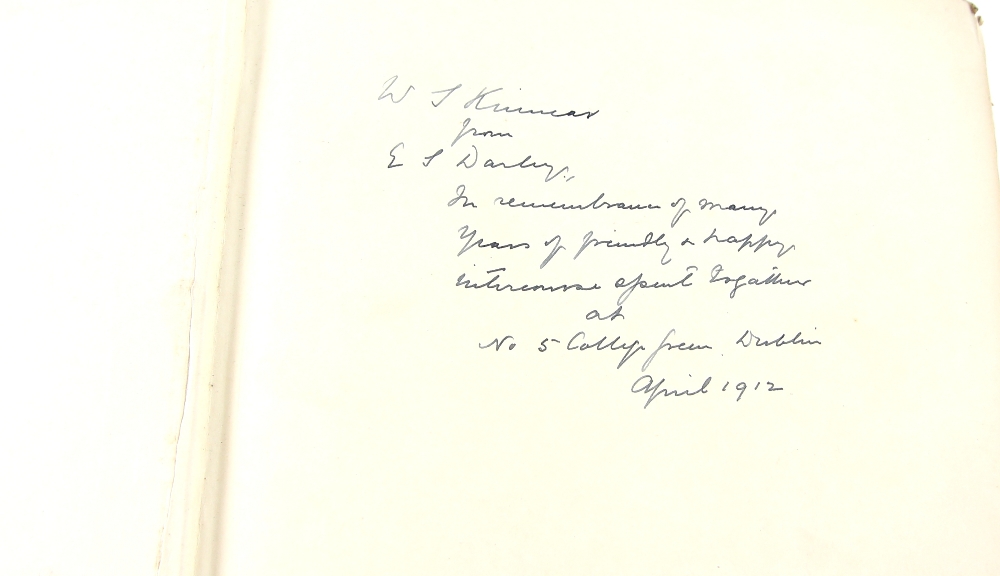 W S Kinnear
from
E S Darley,
In remembrance of many
Years of friendly & happy
intercourse spent together
at
No 5 College Green Dublin
April 1912